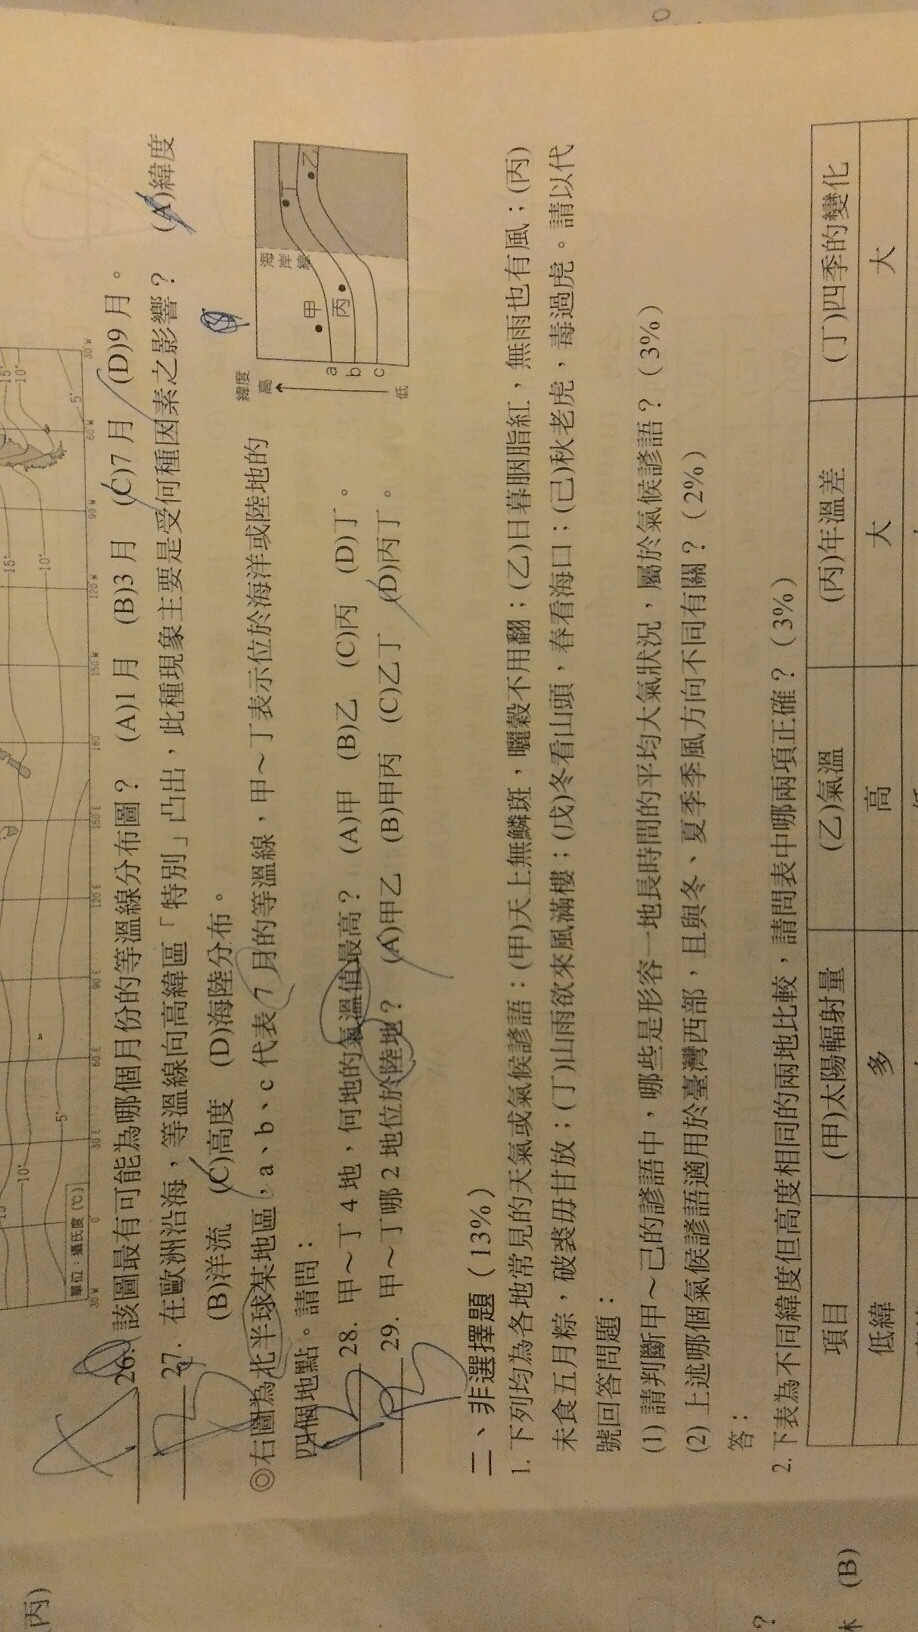 丙)
15°
10°
5°
15°
10°
5°
10°
單位：攝氏度(℃)
30W 0 30E 60E 90E 120E 150E 180 150W 120W 90W 60W 30W
26. 該圖最有可能為哪個月份的等溫線分布圖？ (A)1月 (B)3月 (C)7月 (D)9月。
27. 在歐洲沿海，等溫線向高緯區「特別」凸出，此種現象主要是受何種因素之影響？ (A)緯度
(B)洋流 (C)高度 (D)海陸分布。
◎右圖為北半球某地區，a、b、c代表7月的等溫線，甲～丁表示位於海洋或陸地的
四個地點。請問：
28. 甲～丁4地，何地的氣溫值最高？ (A)甲 (B)乙 (C)丙 (D)丁。
29. 甲～丁哪2地位於陸地？ (A)甲乙 (B)甲丙 (C)乙丁 (D)丙丁。
緯度
高
低
a
b
c
甲
丙
海岸線
丁
乙
二、非選擇題（13%）
1. 下列均為各地常見的天氣或氣候諺語：(甲)天上無鱗斑，曬穀不用翻；(乙)日暮胭脂紅，無雨也有風；(丙)
未食五月粽，破裘毋甘放；(丁)山雨欲來風滿樓；(戊)冬看山頭，春看海口；(己)秋老虎，毒過虎。請以代
號回答問題：
(1) 請判斷甲～己的諺語中，哪些是形容一地長時間的平均大氣狀況，屬於氣候諺語？（3%）
(2) 上述哪個氣候諺語適用於臺灣西部，且與冬、夏季季風方向不同有關？（2%）
答：
2. 下表為不同緯度但高度相同的兩地比較，請問表中哪兩項正確？（3%）
項目 (甲)太陽輻射量 (乙)氣溫 (丙)年溫差 (丁)四季的變化
低緯 多 高 大 大
？
(B)